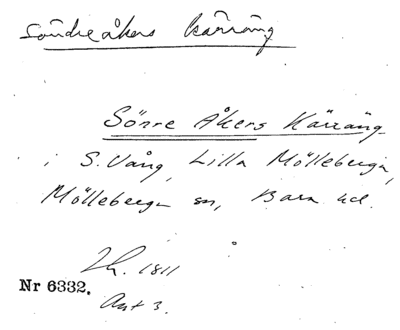 Söndreåkers kärräng
Sönre Åkers Kärräng
i S. Vång, Lilla Mölleberga,
Mölleberga sn, Bara hd.
1811
Nr 6332.
Akt 3.